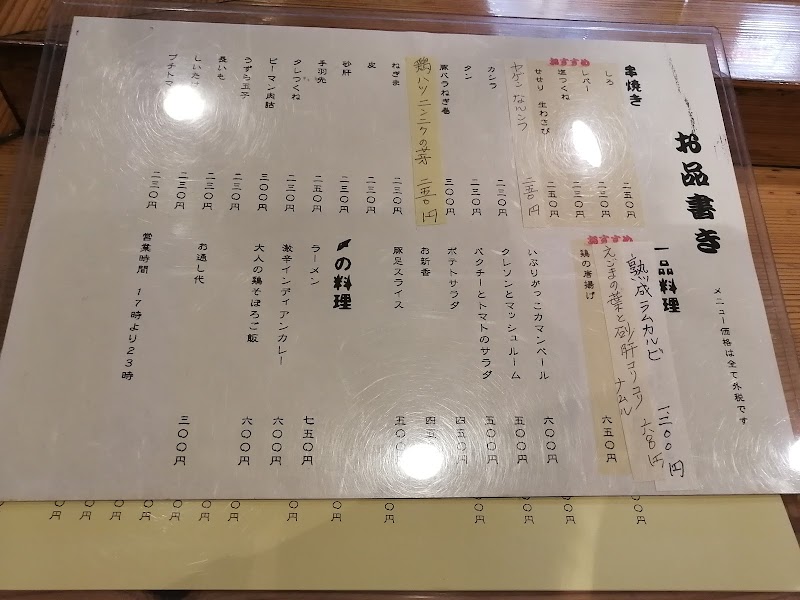 お品書き
メニュー価格は全て外税です
串焼き
しろ 二五〇円
レバー 二三〇円
おすすめ
塩つくね 二三〇円
せせり 生わさび 二五〇円
ヤゲンなんコツ 二五〇円
カシラ 二三〇円
タン 二三〇円
豚バラねぎ巻 三〇〇円
鶏ハツニンニクの芽 二五〇円
ねぎま 二三〇円
皮 二三〇円
砂肝 二三〇円
手羽先 二五〇円
タレつくね 二三〇円
ピーマン肉詰 三〇〇円
うずら玉子 二三〇円
長いも 二三〇円
しいたけ 二三〇円
プチトマ 二三〇円
一品料理
熟成ラムカルビ 一二〇〇円
おすすめ
えごまの葉と砂肝コリコリナムル
鶏の唐揚げ 六五〇円
いぶりがっこカマンベール 六〇〇円
クレソンとマッシュルーム 五〇〇円
パクチーとトマトのサラダ 五〇〇円
ポテトサラダ 四五〇円
お新香 四五
豚足スライス 五〇
〆の料理
ラーメン 七五〇円
激辛インディアンカレー 六〇〇円
大人の鶏そぼろご飯 六〇〇円
お通し代 三〇〇円
営業時間 17時より23時